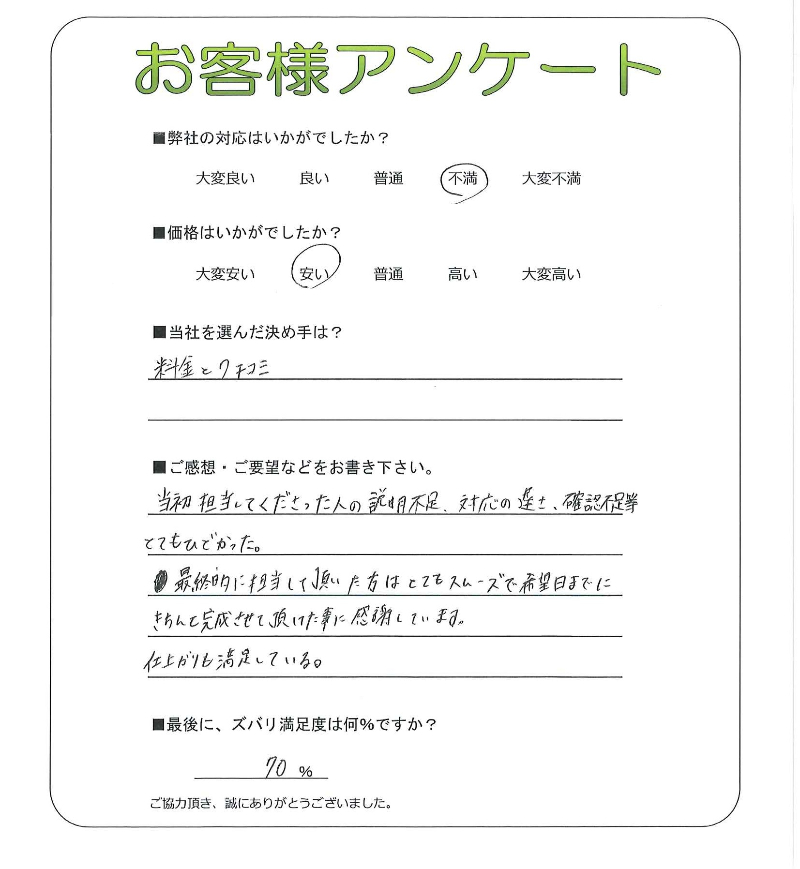 お客様アンケート
■弊社の対応はいかがでしたか？
大変良い 良い 普通 不満 大変不満
■価格はいかがでしたか？
大変安い 安い 普通 高い 大変高い
■当社を選んだ決め手は？
料金と口コミ
■ご感想・ご要望などをお書き下さい。
当初担当してくださった人の説明不足、対応の遅さ、確認不足等
とてもひどかった。
最終的に担当して頂いた方はとてもスムーズで希望日までに
きちんと完成させて頂けた事に感謝しています。
仕上がりも満足している。
■最後に、ズバリ満足度は何%ですか？
70 %
ご協力頂き、誠にありがとうございました。